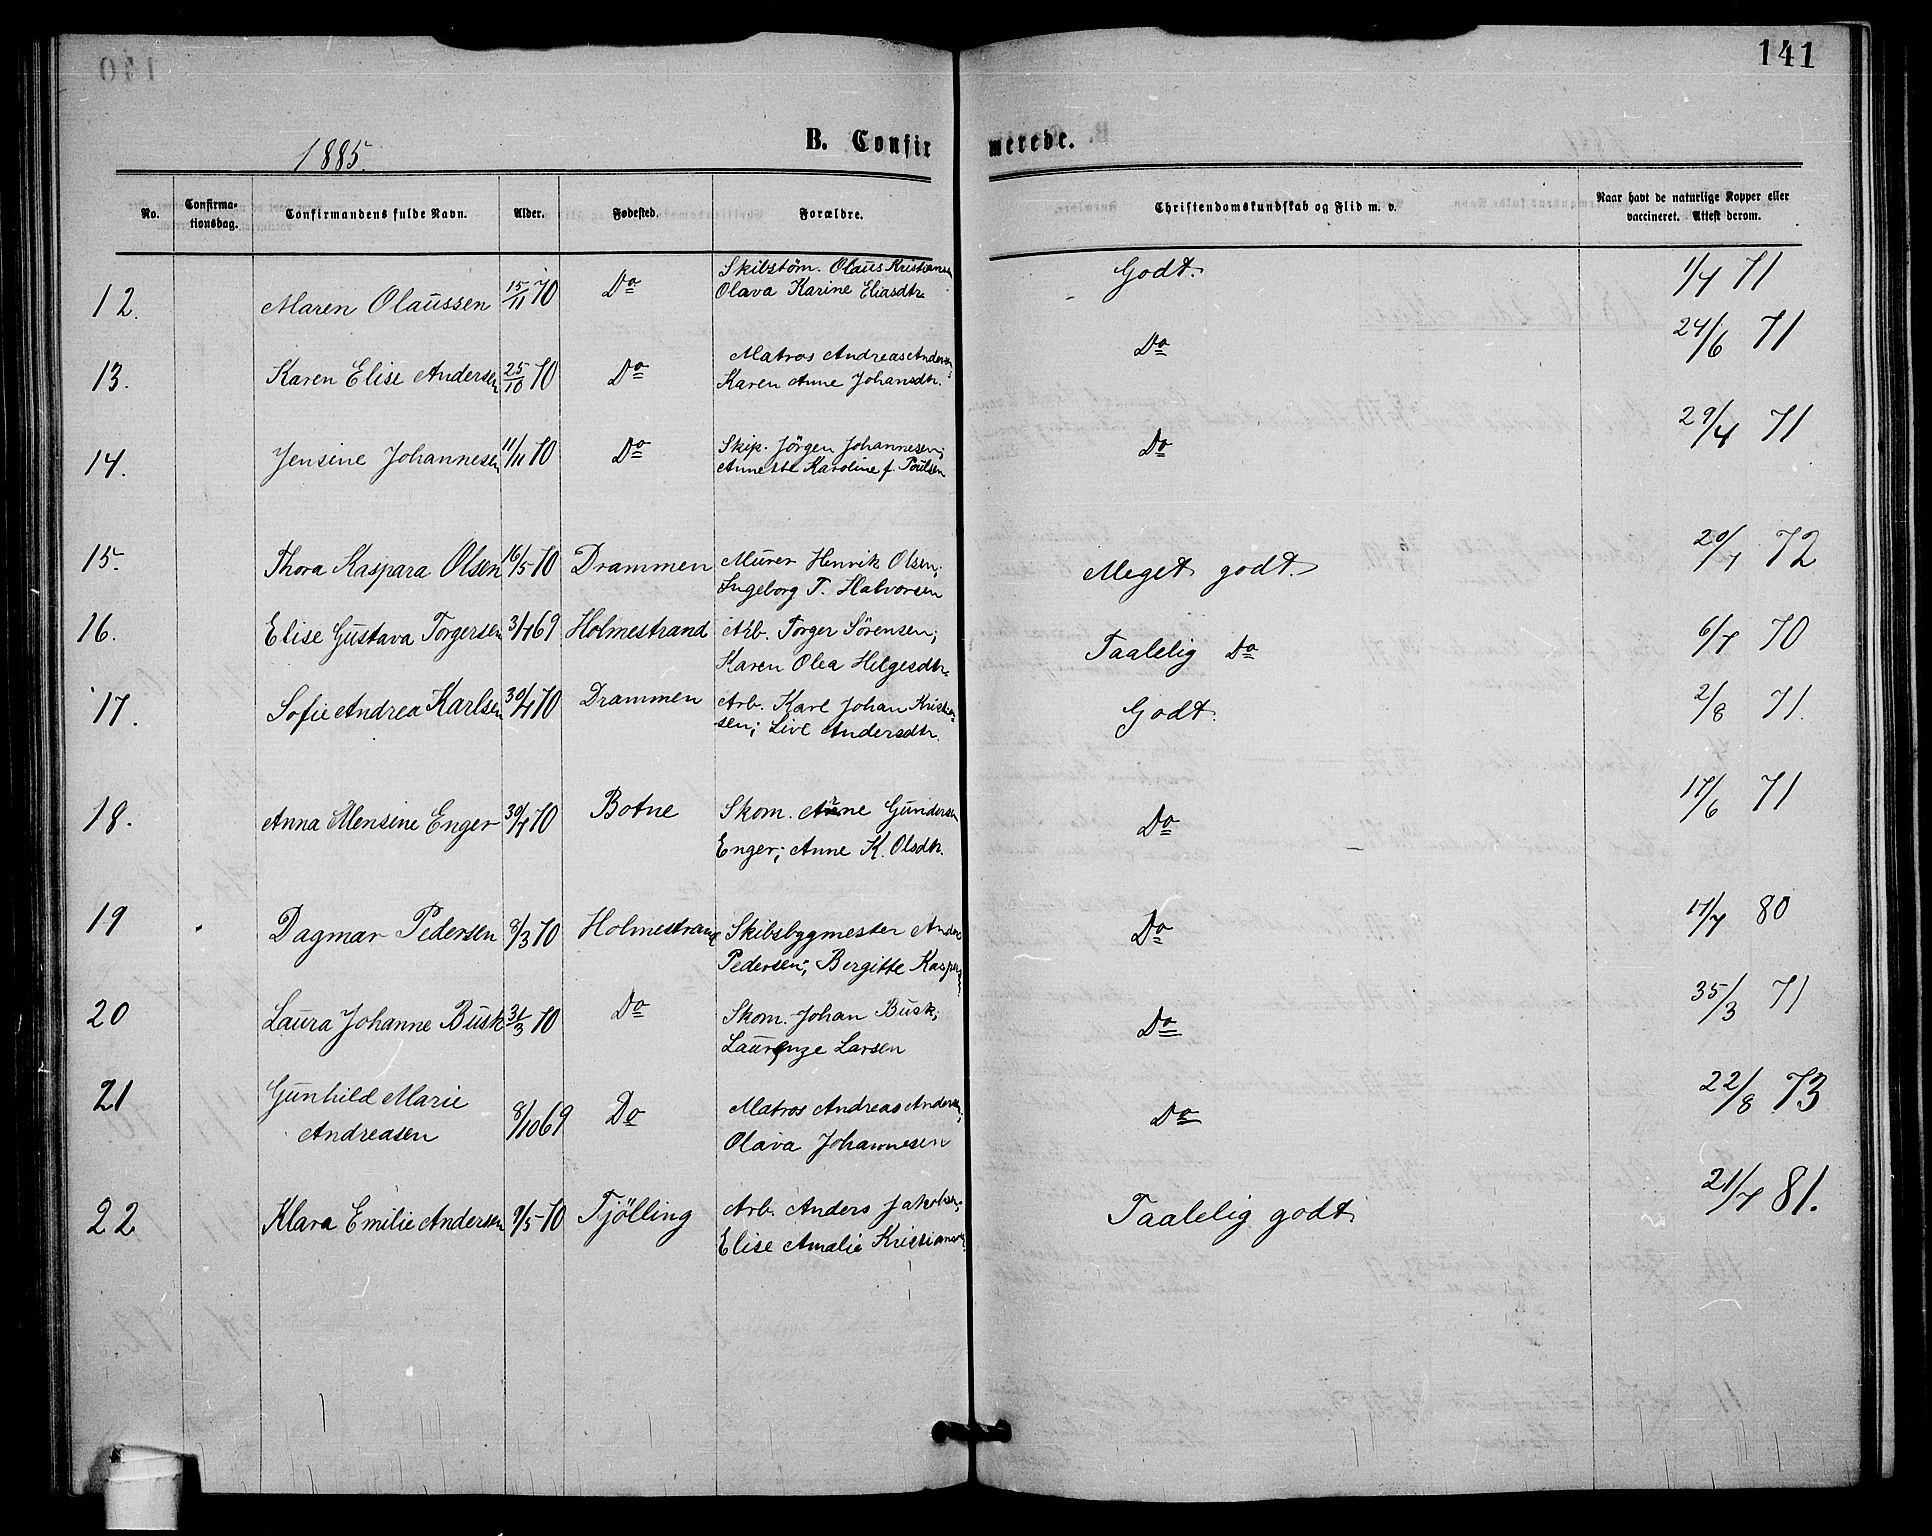 141
1885.
B. Confirmerede.
No. Confirmationsdag. Confirmandens fulde Navn. Alder. Fødested. Forældre. Christendomskundskab og Flid m. v. Naar havt de naturlige Kopper eller vaccineret. Attest derom.
12. Maren Olaussen 15/11 70 Do Skibstøm. Olaus Kristiansen Olava Karine Eliasdtr. Godt. 1/7 71
13. Karen Elise Andersen 25/10 70 Do Matros Andreas Andersen; Karen Anne Johansdtr. Do 24/6 71
14. Jensine Johannesen 11/11 70 Do Skip. Jörgen Johannesen; Annette Karoline f. Poulsen Do 29/4 71
15. Thora Kaspara Olsen 16/5 70 Drammen Murer Henrik Olsen; Ingeborg T. Halvorsen Meget godt. 20/7 72
16. Elise Gustava Torgersen 3/7 69 Holmestrand Arb. Torger Sörensen; Karen Olea Helgesdtr. Taalelig Do 6/7 70
17. Sofie Andrea Karlsen 30/7 70 Drammen Arb. Karl Johan Kristiansen; Live Andersdtr. Godt. 2/8 71.
18. Anna Mensine Enger 30/7 70 Botne Skom. Gundersen Enger; Anne K. Olsdtr. Do 17/6 71
19 Dagmar Pedersen 8/3 70 Holmestrand Skibsbygmester Anders Pedersen; Bergitte Do 17/7 80
20 Laura Johanne Busk 31/3 70 Do Skom. Johan Busk; Laurenze Larsen Do 35/3 71
21 Gunhild Marie Andreasen 8/10 69 Do Matros Andreas Andersen; Olava Johannesen Do 22/8 73
22 Klara Emilie Andersen 9/5 70 Tjölling Arb. Anders Jakobsen; Elise Amalie Taalelig godt 21/7 81.